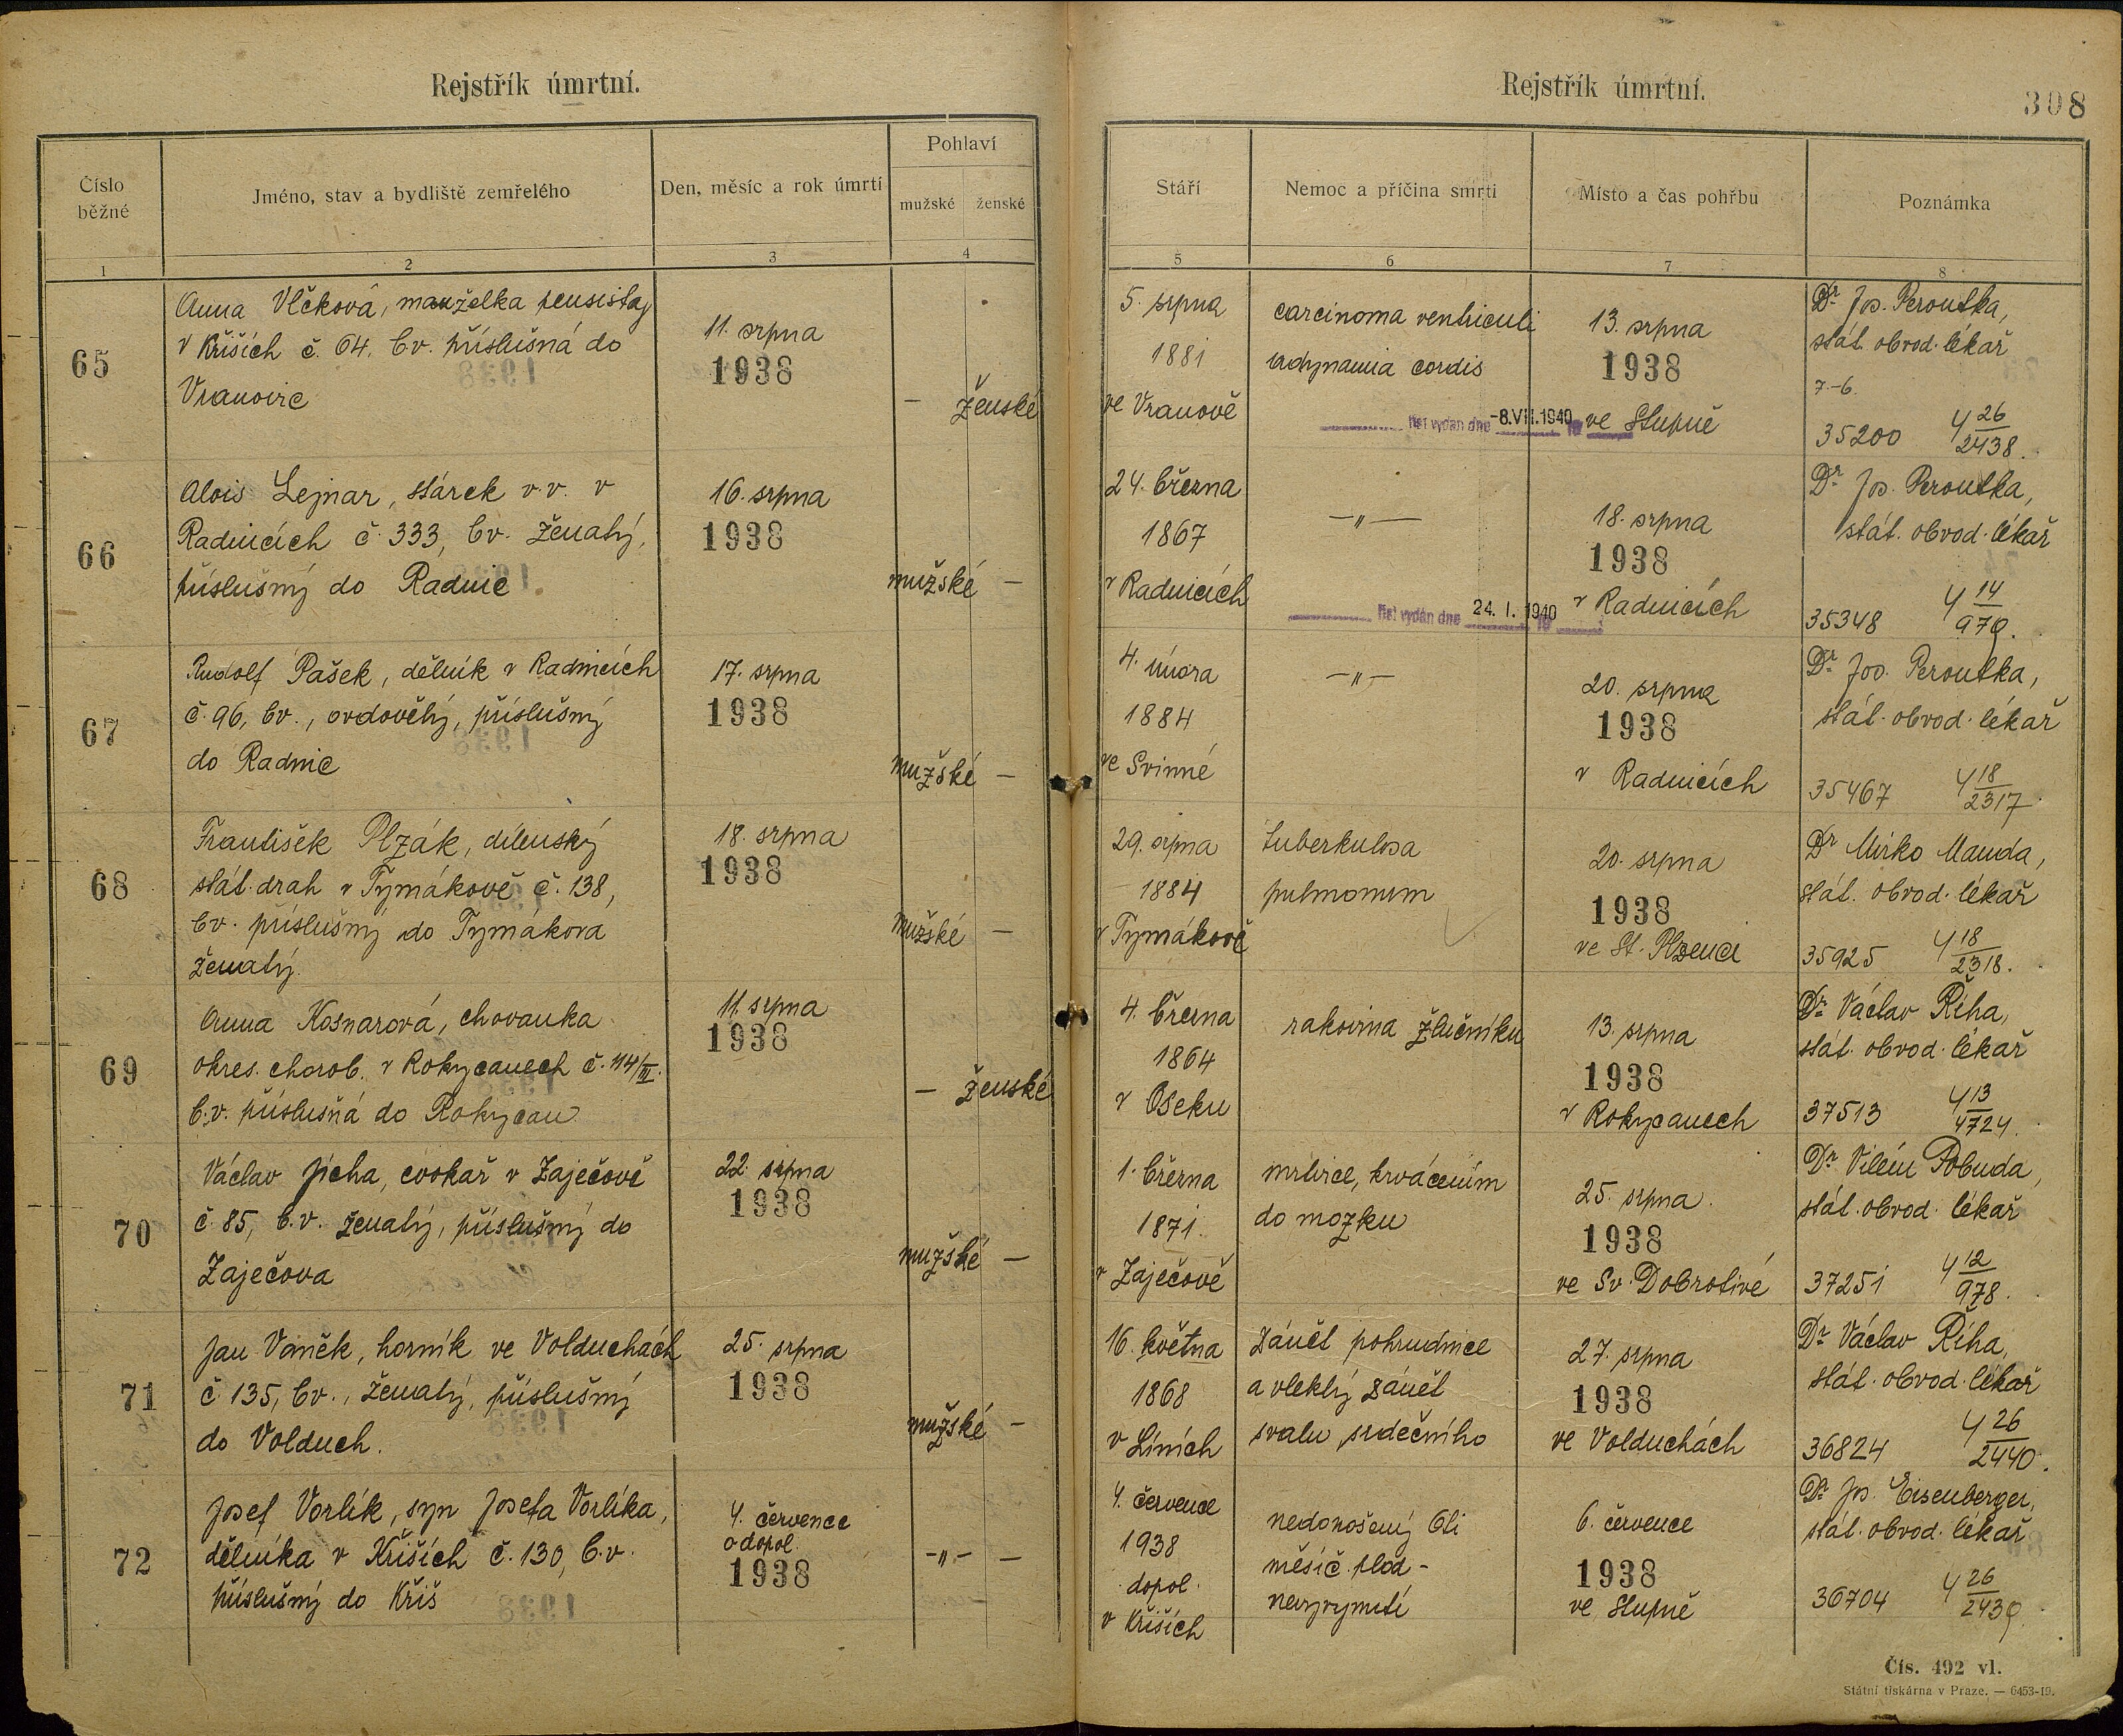 Rejstřík úmrtní.
Rejstřík úmrtní.
308
Číslo běžné
Jméno, stav a bydliště zemřelého
Den, měsíc a rok úmrtí
Pohlaví
mužské
ženské
Stáří
Nemoc a příčina smrti
Místo a čas pohřbu
Poznámka
1
2
3
4
5
6
7
8
65
Anna Vlčková, manželka pensisty
v Křiších č. 64. bv. příslušná do
Vranovic
11. srpna
1938
— ženské
5. srpna
1881
ve Vranově
carcinoma ventriculi
adynamia cordis
list vydán dne -8.VII.1940
13. srpna
1938
ve Stupně
Dr. Jos. Peroutka,
stát. obvod. lékař
7.-6.
35200 4 26/2438.
66
Alois Lejnar, stárek v.v. v
Radnicích č. 333, bv. ženatý,
příslušný do Radnic.
16. srpna
1938
mužské —
24. března
1867
v Radnicích
—„—
list vydán dne 24. I. 1940
18. srpna
1938
v Radnicích
Dr. Jos. Peroutka,
stát. obvod. lékař
35348 4 14/979.
67
Rudolf Pašek, dělník v Radnicích
č. 96, bv., ovdovělý, příslušný
do Radnic
17. srpna
1938
mužské —
4. února
1884
ve Svinné
—„—
20. srpna
1938
v Radnicích
Dr. Jos. Peroutka,
stát. obvod. lékař
35467 4 18/2317.
68
František Plzák, dílenský
stát. drah v Tymákově č. 138,
bv. příslušný do Tymákova
ženatý.
18. srpna
1938
mužské —
29. srpna
1884
v Tymákově
tuberkulosa
pulmonum
20. srpna
1938
ve St. Plzenci
Dr. Mirko Mauda,
stát. obvod. lékař
35925 4 18/2318.
69
Anna Kosnarová, chovanka
okres. chorob. v Rokycanech č. 114/III.
b.v. příslušná do Rokycan
11. srpna
1938
— ženské
4. března
1864
v Oseku
rakovina žlučníku
13. srpna
1938
v Rokycanech
Dr. Václav Říha,
stát. obvod. lékař
37513 4 13/4724.
70
Václav Jícha, cvokař v Zaječově
č. 85, b.v. ženatý, příslušný do
Zaječova
22. srpna
1938
mužské —
1. března
1871.
v Zaječově
mrtvice, krvácením
do mozku
25. srpna.
1938
ve Sv. Dobrotivé
Dr. Vilém Pobuda,
stát. obvod. lékař
37251 4 12/978.
71
Jan Vaněk, horník ve Volduchách
č. 135, bv., ženatý, příslušný
do Volduch.
25. srpna
1938
mužské —
16. května
1868
v Líních
Zánět pohrudnice
a vleklý zánět
svalu srdečního
27. srpna
1938
ve Volduchách
Dr. Václav Říha,
stát. obvod. lékař
36824 4 26/2440.
72
Josef Vorlík, syn Josefa Vorlíka,
dělníka v Křiších č. 130, b.v.
příslušný do Kříš
4. července
odopol.
1938
—„— —
4. července
1938
dopol.
v Křiších
nedonošený 6ti
měsíč. plod-
nevyvynutí
6. července
1938
ve Stupně
Dr. Jos. Eisenberger,
stát. obvod. lékař
36704 4 26/2439.
Čís. 492 vl.
Státní tiskárna v Praze. — 6453-19.